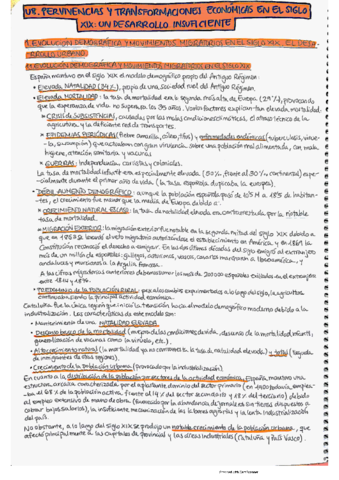 U8. PERVIVENCIAS Y TRANSFORMACIONES ECONÓMICAS EN EL SIGLO
XIX: UN DESARROLLO INSUFICIENTE
1. EVOLUCIÓN DEMOGRÁFICA Y MOVIMIENTOS MIGRATORIOS EN EL SIGLO XIX. EL DESA-
RROLLO URBANO.
1.1 EVOLUCIÓN DEMOGRÁFICA Y MOVIMIENTOS MIGRATORIOS EN EL SIGLO XIX
España mantuvo en el siglo XIX el modelo demográfico propio del Antiguo Régimen:
• ELEVADA NATALIDAD (34%), propia de una sociedad rural del Antiguo Régimen.
• ELEVADA MORTALIDAD: la tasa de mortalidad era la segunda más alta de Europa (29%), provocando
que la esperanza de vida no superase los 35 años. Varios factores explican tan elevada mortalidad:
* CRISIS DE SUBSISTENCIAS: causadas por las malas condiciones climáticas, el atraso técnico de la
agricultura, y la deficiente red de transportes.
* EPIDEMIAS PERIÓDICAS (fiebre amarilla, cólera, tifus) y enfermedades endémicas (tuberculosis, virue-
la, sarampión) que actuaron con gran virulencia sobre una población mal alimentada, con mala
higiene, atención sanitaria y vacunas
* GUERRAS: independencia, carlistas y coloniales.
La tasa de mortalidad infantil era especialmente elevada
cialmente durante el primer año de vida
• DÉBIL AUMENTO DEMOGRÁFICO: aunque la población española pasó de
tes, el crecimiento fue menor que la media de Europa debido a:
* CRECIMIENTO NATURAL ESCASO: la tasa de natalidad elevada era contrarrestada por la notable
tasa de mortalidad.
* MIGRACIÓN EXTERIOR: la migración exterior fue notable en la segunda mitad del siglo XIX debido a
que en 1853 se levantó el veto migratorio autorizándose el establecimiento en América y en 1869 la
Constitución reconoció el derecho a emigrar. En las dos últimas décadas del siglo emigró al extranjero
más de un millón de españoles: gallegos, asturianos, vascos, canarios marcharon a Iberoamérica, y
andaluces y murcianos a la Argelia francesa.
A las cifras migratorias anteriores deberían sumarse los más de 200.000 españoles exiliados en el extranjero
entre 1814 y 1874.
• PREDOMINIO DE LA POBLACIÓN RURAL: pese a los cambios experimentados a lo largo del siglo, la agricultura
continuaba siendo la principal actividad económica.
Cataluña fue la única región que inició la transición hacia el modelo demográfico moderno debido a la
industrialización. Las características de este modelo son:
- Mantenimiento de una NATALIDAD ELEVADA.
- Descenso brusco de la mortalidad (mejora de las condiciones de vida, descenso de la mortalidad infantil,
generalización de vacunas como la viruela, etc.),
- Alto crecimiento natural (la mortalidad ya no contrarresta la tasa de natalidad elevada) y total (llegada
de inmigrantes de otras regiones).
- Crecimiento de la población urbana (provocado por la industrialización).
En cuanto a la distribución de la población por sectores de la actividad económica, España mantuvo una
estructura arcaica caracterizada por el importante dominio del sector primario
ban el 68% de la población activa, frente al 14% del sector secundario y 18% del terciario) debido
al empleo extensivo de mano de obra
cobrar bajos salarios), la insuficiente mecanización de las labores agrícolas y la lenta industrialización
del país.
No obstante, a lo largo del siglo XIX se produjo un notable crecimiento de la población urbana, que
afectó principalmente a las capitales de provincia y las áreas industriales (Cataluña y País Vasco).